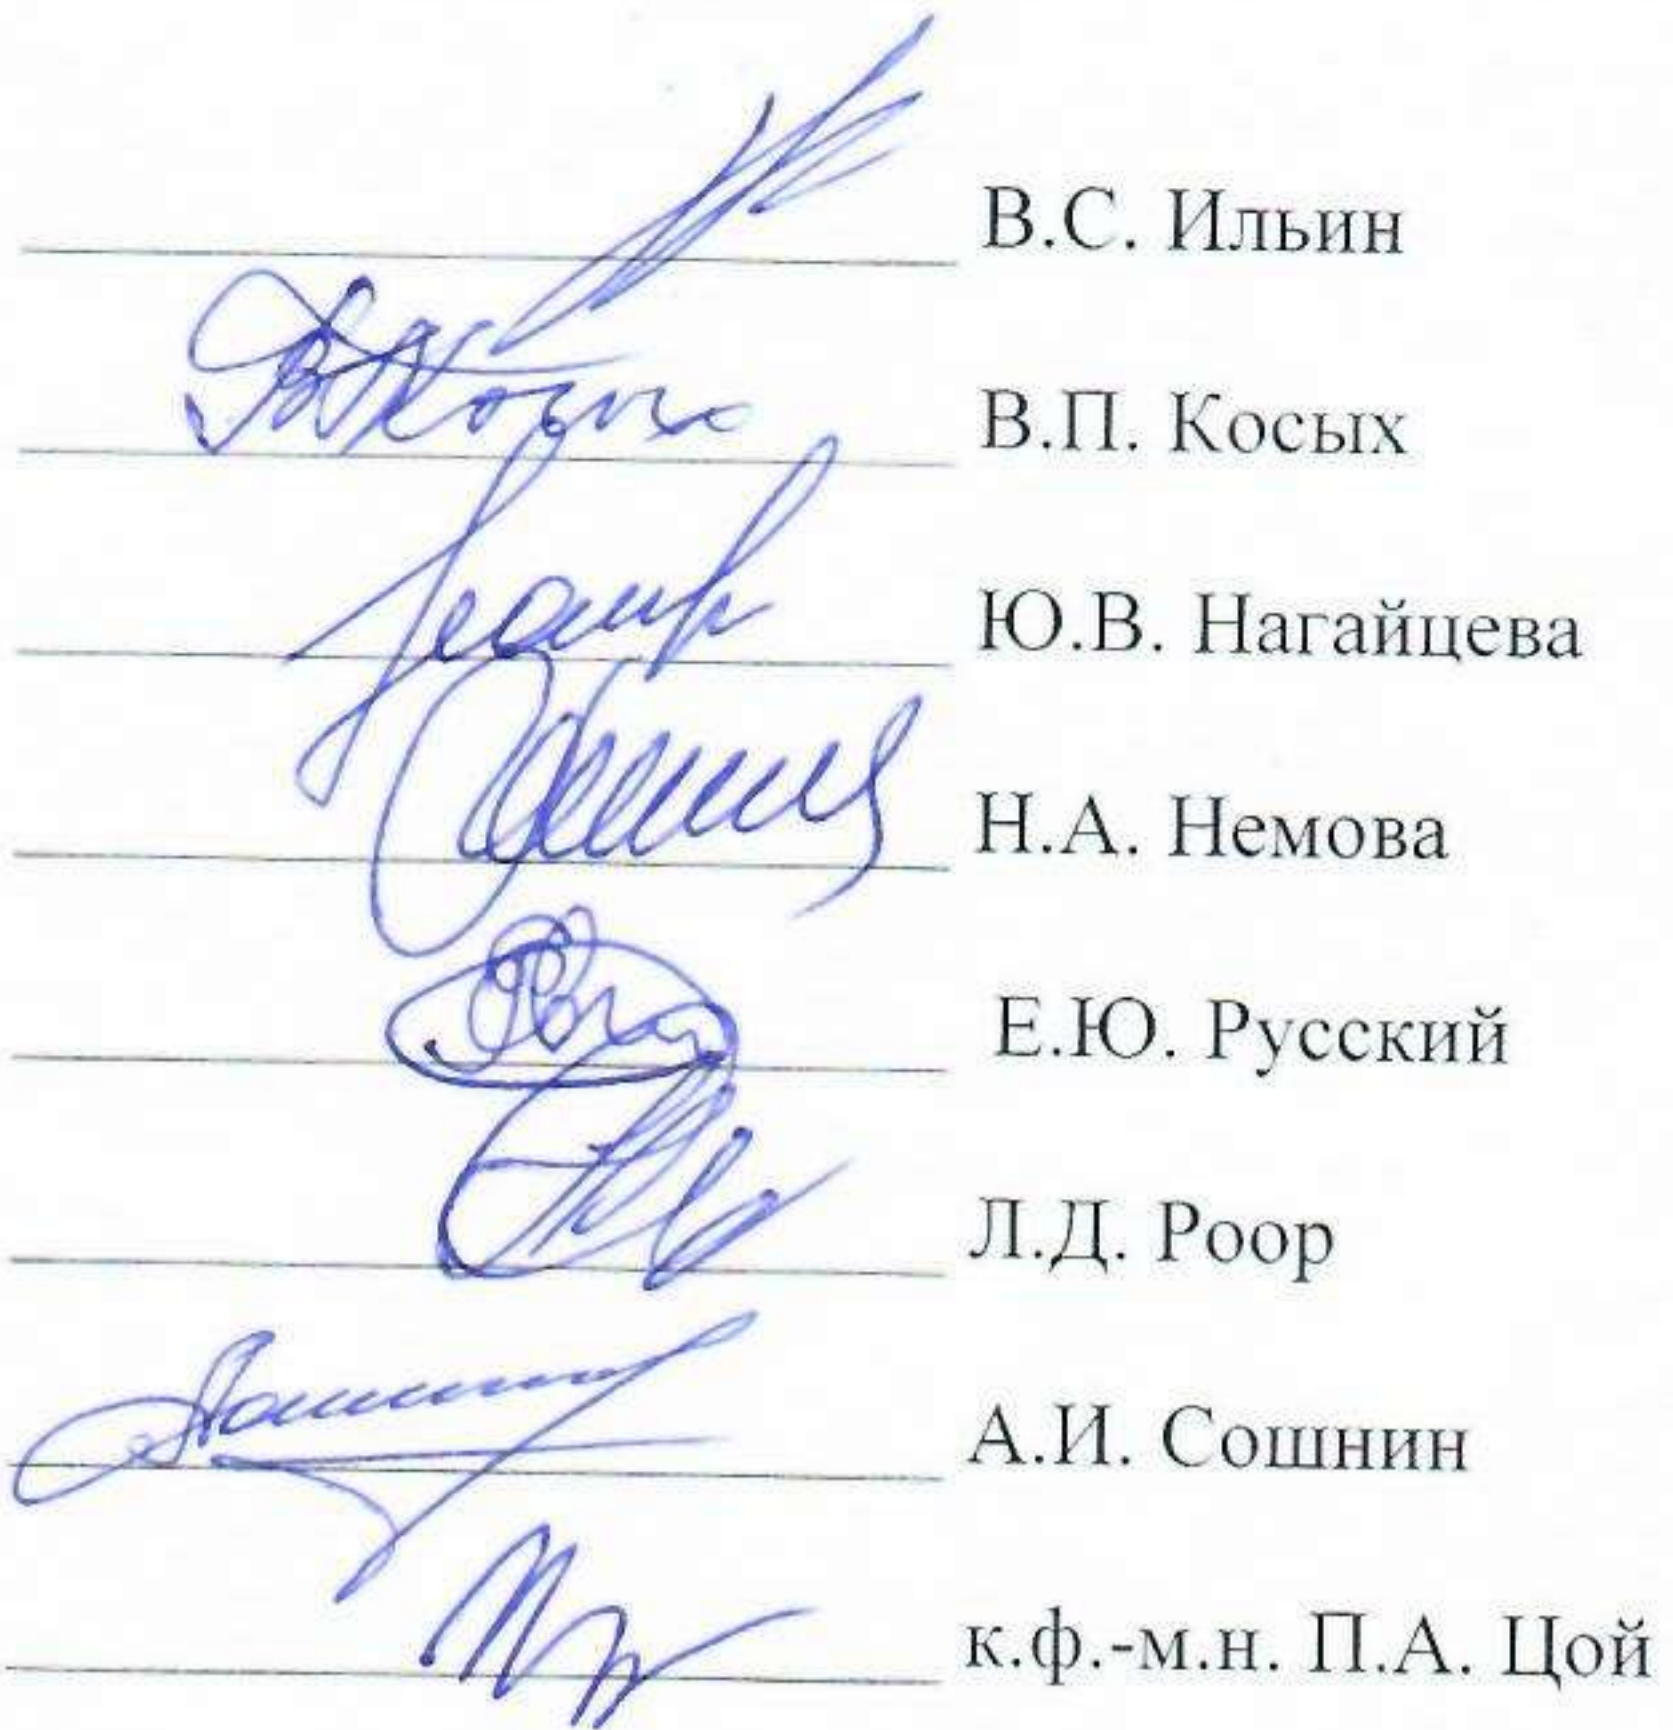 В.С. Ильин
В.П. Косых
Ю.В. Нагайцева
Н.А. Немова
Е.Ю. Русский
Л.Д. Роор
А.И. Сошнин
к.ф.-м.н. П.А. Цой